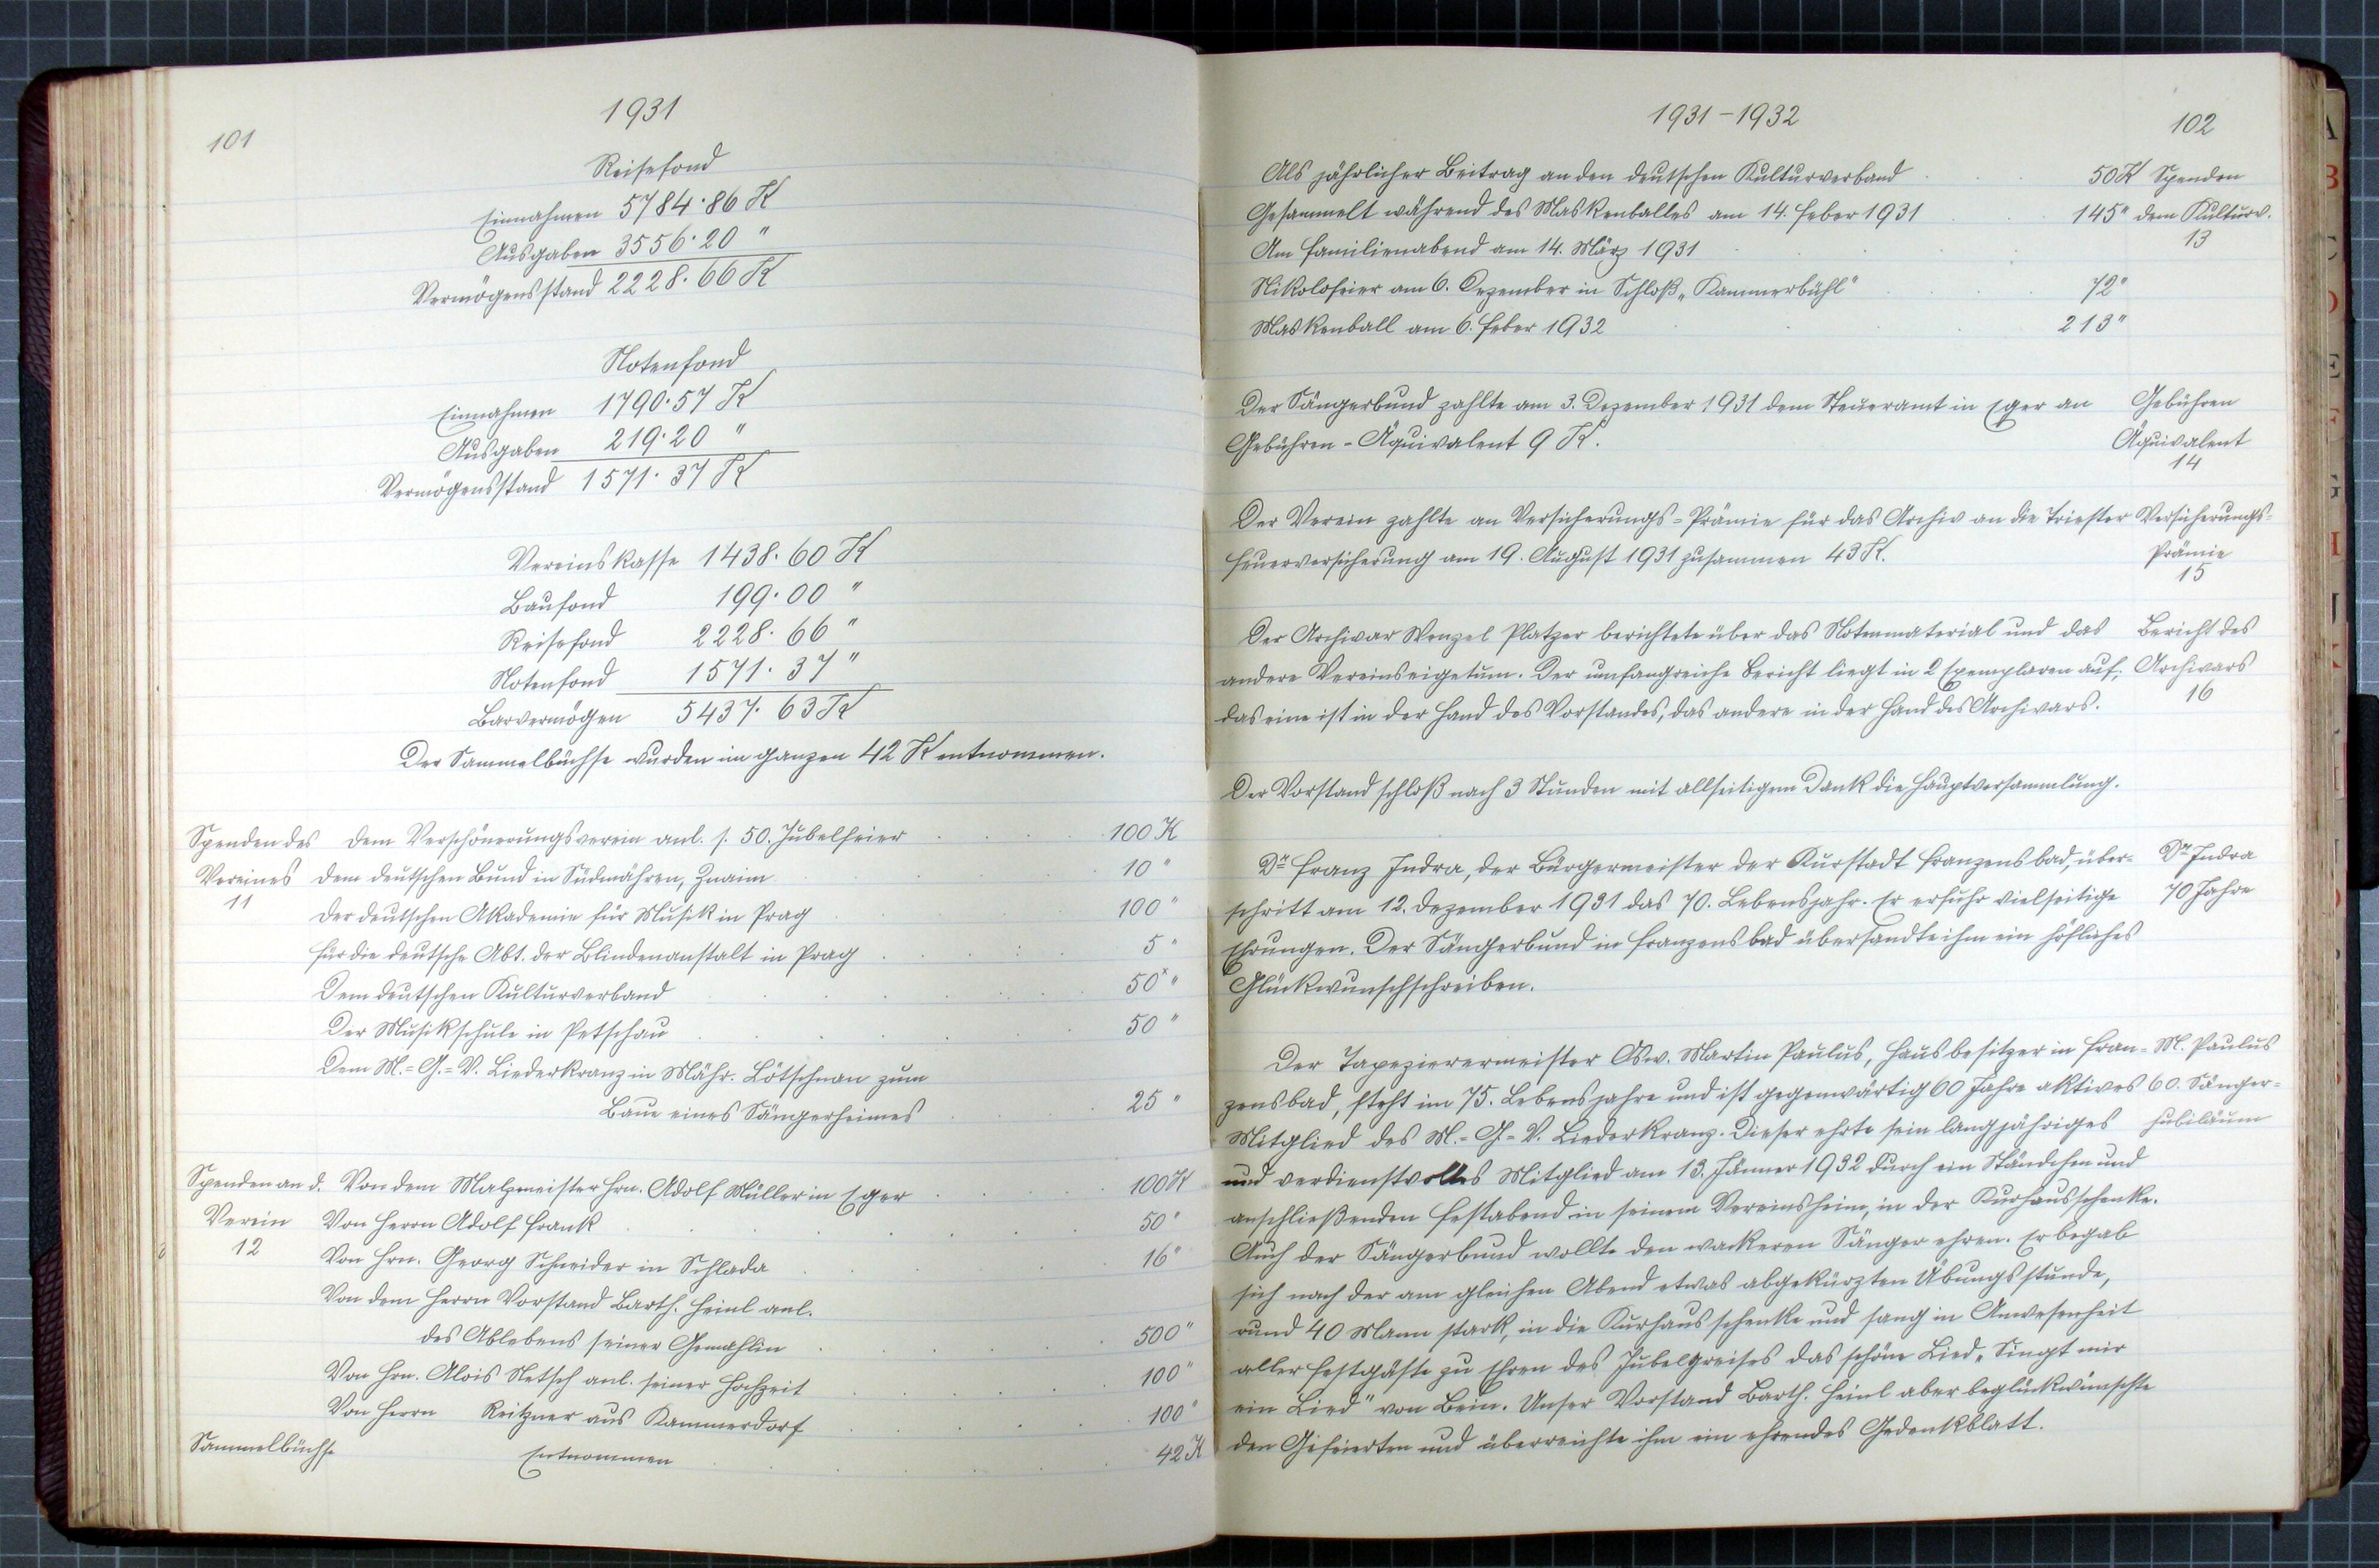 101
1931
Reisefond
Einnahmen 5784·86 K
Ausgaben 3556·20 "
Vermögensstand 2228·66 K
Notenfond
Einnahmen 1790·57 K
Ausgaben 219·20 "
Vermögensstand 1571·37 K
Vereinskasse 1438·60 K
Baufond 199·00 "
Reisefond 2228·66 "
Notenfond 1571·37 "
Barvermögen 5437·63 K
Der Sammelbüchse wurden im ganzen 42 K entnommen.
Spenden des dem Verschönerungsverein anl. s. 50. Jubelfeier 100 K
Vereines dem deutschen Bund in Südmähren, Znaim 10 "
11 der deutschen Akademie für Musik in Prag 100 "
für die deutsche Abt. der Blindenanstalt in Prag 5 "
Dem deutschen Kulturverband 50x "
Der Musikschule in Petschau 50 "
Dem M.=G.=V. Liederkranz in Mähr. Lötschnau zum
Baue eines Sängerheimes 25 "
Spenden an d. Von dem Malzmeister Hrn. Adolf Müller in Eger 100 K
Verein Von Herrn Adolf Frank 50 "
12 Von Hrn. Georg Schneider in Schlada 16 "
Von dem Herrn Vorstand Barth. Heinl anl.
des Ablebens seiner Gemahlin 500 "
Von Hrn. Alois Netsch anl. seiner Hochzeit 100 "
Von Herrn Reitzner aus Kammerdorf 100 "
Sammelbüchse Entnommen 42 K
1931-1932
102
Als jährlicher Beitrag an den deutschen Kulturverband 50 K Spenden
Gesammelt während des Maskenballes am 14. Feber 1931 145 " dem Kulturv.
Am Familienabend am 14. März 1931 13
Nikolofeier am 6. Dezember in Schloß „Kammerbühl" 72 "
Maskenball am 6. Feber 1932 213 "
Der Sängerbund zahlte am 3. Dezember 1931 dem Steueramt in Eger an Gebühren
Gebühren-Äquivalent 9 K. Äquivalent
14
Der Verein zahlte an Versicherungs=Prämie für das Archiv an die Triester Versicherungs=
Feuerversicherung am 19. August 1931 zusammen 43 K. Prämie
15
Der Archivar Wenzel Platzer berichtete über das Notenmaterial und das Bericht des
andere Vereinseigetum. Der umfangreiche Bericht liegt in 2 Exemplaren auf; Archivars
das eine ist in der Hand des Vorstandes, das andere in der Hand des Archivars. 16
Der Vorstand schloß nach 3 Stunden mit allseitigem Dank die Hauptversammlung.
Dr Franz Indra, der Bürgermeister der Kurstadt Franzensbad, über= Dr Indra
schritt am 12. Dezember 1931 das 70. Lebensjahr. Er erfuhr vielseitige 70 Jahre
Ehrungen. Der Sängerbund in Franzensbad übersandte ihm ein höfliches
Glückwunschschreiben.
Der Tapezierermeister Osw. Martin Paulus, Hausbesitzer in Fran= M. Paulus
zensbad, steht im 75. Lebensjahre und ist gegenwärtig 60 Jahre aktives 60. Sänger=
Mitglied des M.=G.=V. Liederkranz. Dieser ehrte sein langjähriges jubiläum
und verdienstvolles Mitglied am 13. Jänner 1932 durch ein Ständchen und
anschließenden Festabend in seinem Vereinsheim, in der Kurhausschenke.
Auch der Sängerbund wollte den wackeren Sänger ehren. Er begab
sich nach der am gleichen Abend etwas abgekürzten Übungsstunde,
rund 40 Mann stark, in die Kurhausschenke und sang in Anwesenheit
aller Festgäste zu Ehren des Jubelgreises das schöne Lied „Singt mir
ein Lied" von Bein. Unser Vorstand Barth. Heinl aber beglückwünschte
den Gefeierten und überreichte ihm ein ehrendes Gedenkblatt.